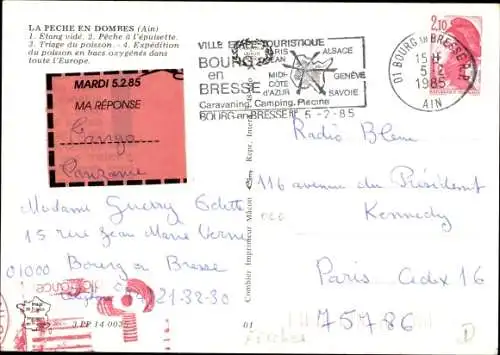 LA PECHE EN DOMBES (Ain)
1. Etang vidé. 2. Pêche à l'épuisette.
3. Triage du poisson. - 4. Expédition
du poisson en bacs oxygénés dans
toute l'Europe.
MARDI 5.2.85
MA RÉPONSE
VILLE ETAPE TOURISTIQUE
BOURG
en
BRESSE
PARIS
ALSACE
MIDI
CÔTE
D'AZUR
GENÈVE
SAVOIE
Caravaning Camping Piscine
BOURG en BRESSE
5-2-85
01 BOURG EN BRESSE R.P.
15H
5-2
1985
AIN
2,10
Radio Bleue
116 avenue du Président
Kennedy
Paris Cedex 16
75786
Madame Guerry Odette
15 rue Jean Marie Verne
01000 Bourg en Bresse
21-32-30
Combier Imprimeur Mâcon
3 PP 14 00
01